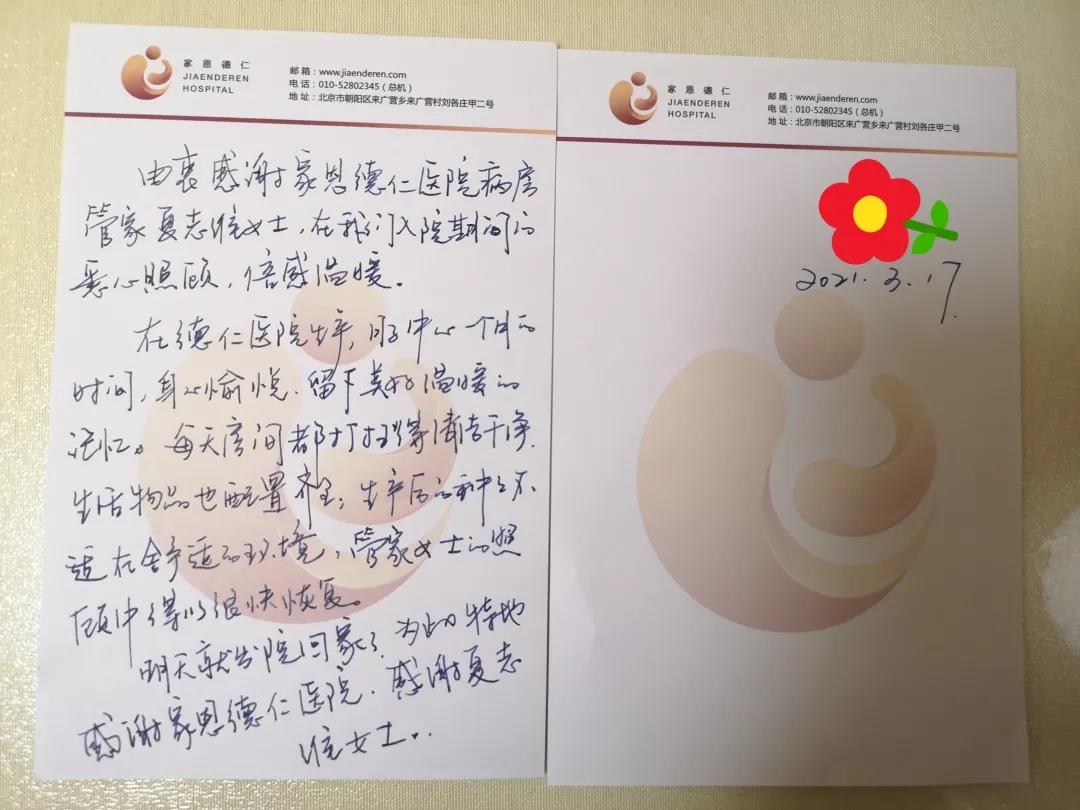 家恩德仁
JIAENDEREN
HOSPITAL
邮箱：www.jiaenderen.com
电话：010-52802345（总机）
地址：北京市朝阳区来广营乡来广营村刘各庄甲二号
由衷感谢家恩德仁医院病房
管家夏志 女士，在我们入院期间的
悉心照顾，倍感温暖。
在德仁医院生产，月子中心一个月的
时间，身心愉悦．留下美好温暖的
记忆。每天房间都打扫得清洁干净．
生活物品也配置齐全；生产后的种种不
适在舒适的环境，管家女士的照
顾中得以很快恢复。
明天就出院回家了．为此特地
感谢家恩德仁医院．感谢夏志
女士．．
家恩德仁
JIAENDEREN
HOSPITAL
邮箱：www.jiaenderen.com
电话：010-52802345（总机）
地址：北京市朝阳区来广营乡来广营村刘各庄甲二号
2021.3.17.